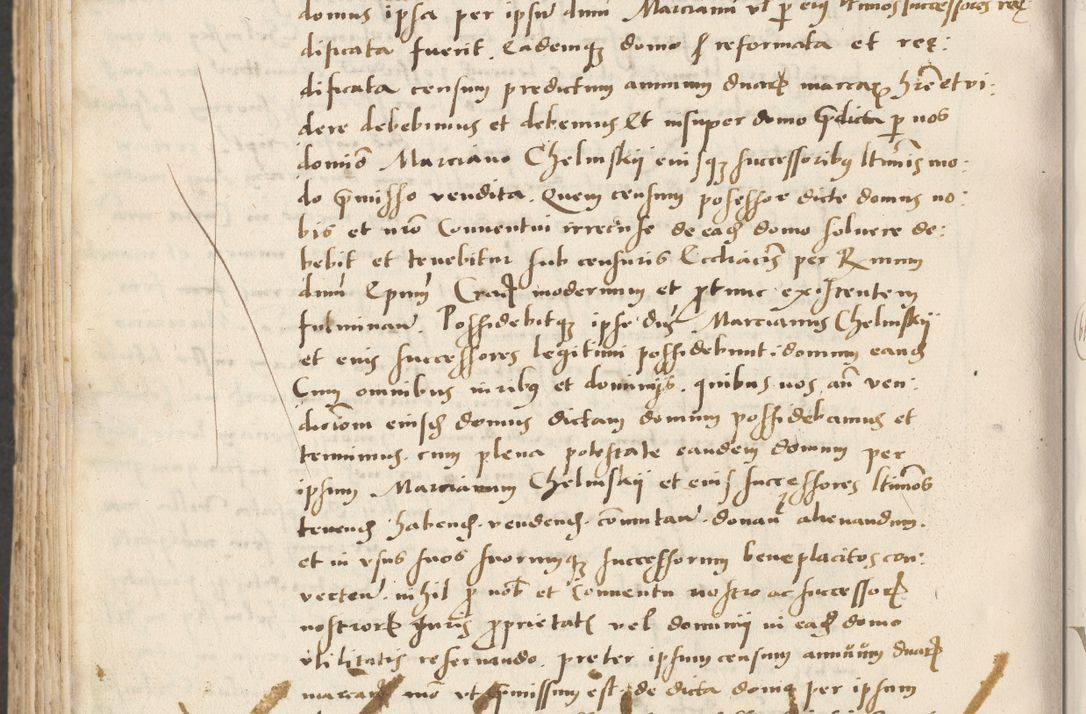 domus ipsa per ipsū dnm̄ Marcianū vl̄ p eiq̄ ltimos successores ree
dificata fuerit. Eademq domo sic reformata et ree:
dificata censum predictum annuum duarꝝ marcarꝝ hr̄e et vi:
dere debebimus et debemus Et insuper domo p̄dicta p nos
domino Marciano Chelmskij eiusqꝫ successoribꝯ ltimis mo:
do p̄misso vendita. Quem censum possessor dicte domus no:
bis et nr̄o Conuentui irrecuse de eadꝫ domo soluere de:
bebit et tenebitur sub censuris Ecclīacis per R mum
dnm̄ Epum̄ Cracꝭ modernum et p tunc existentem
fulminanꝭ. Possidebitqꝫ ipse dn̄s Marcianus Chelmskij
et eius successores legitimi possidebunt domum eandꝫ
Cum omnibus iuribꝯ et dominijs. quibus nos an̄ ven:
dicōm eiusdꝫ domus dictam domum possidebamus et
tenuimus. cum plena potestate eandem domum per
ipsum Marcianum Chelmskij et eius successores ltimos
tenendꝫ habendꝫ. vendendꝫ. cōmutanꝭ. donanꝭ alienandum.
et in vsus suos suorumqꝫ successorum beneplacitos con:
vertenꝭ. nihil p nobꝭ et Conuentu nostro ac successorꝝ
nostrorꝝ Juris pprietatꝭ vel dominij in eadꝫ domo
vtilitatis reseruando. preter ipsum censum annuum duarꝝ
marcarꝝ mō vt p̄missum est de dicta domo per ipsum